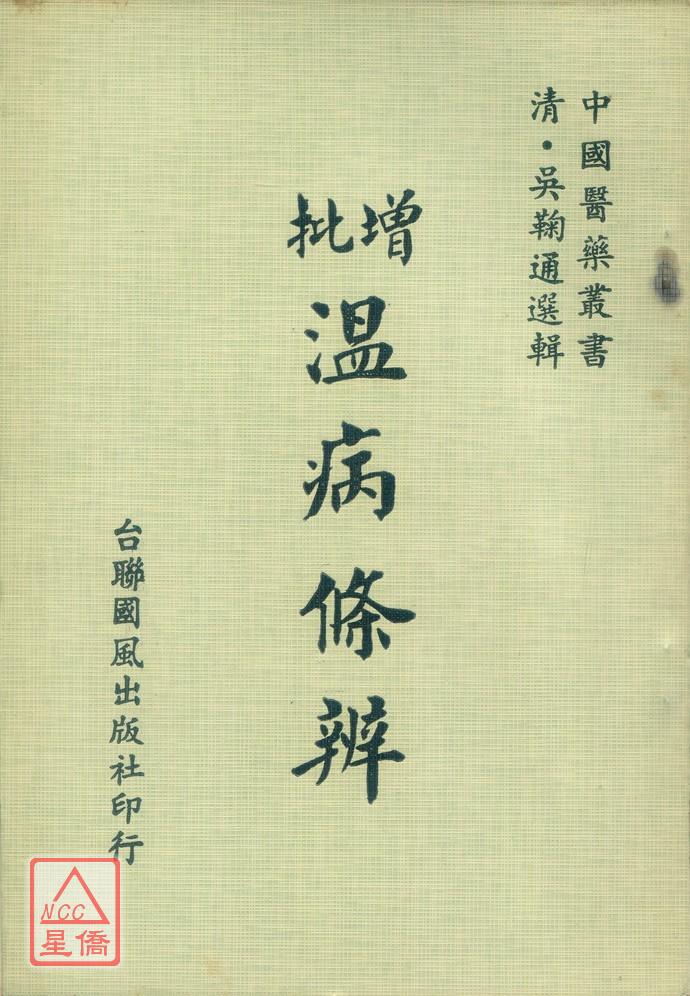 中國醫藥叢書
清・吳鞠通選輯
增批
温病條辨
台聯國風出版社印行
NCC
星僑